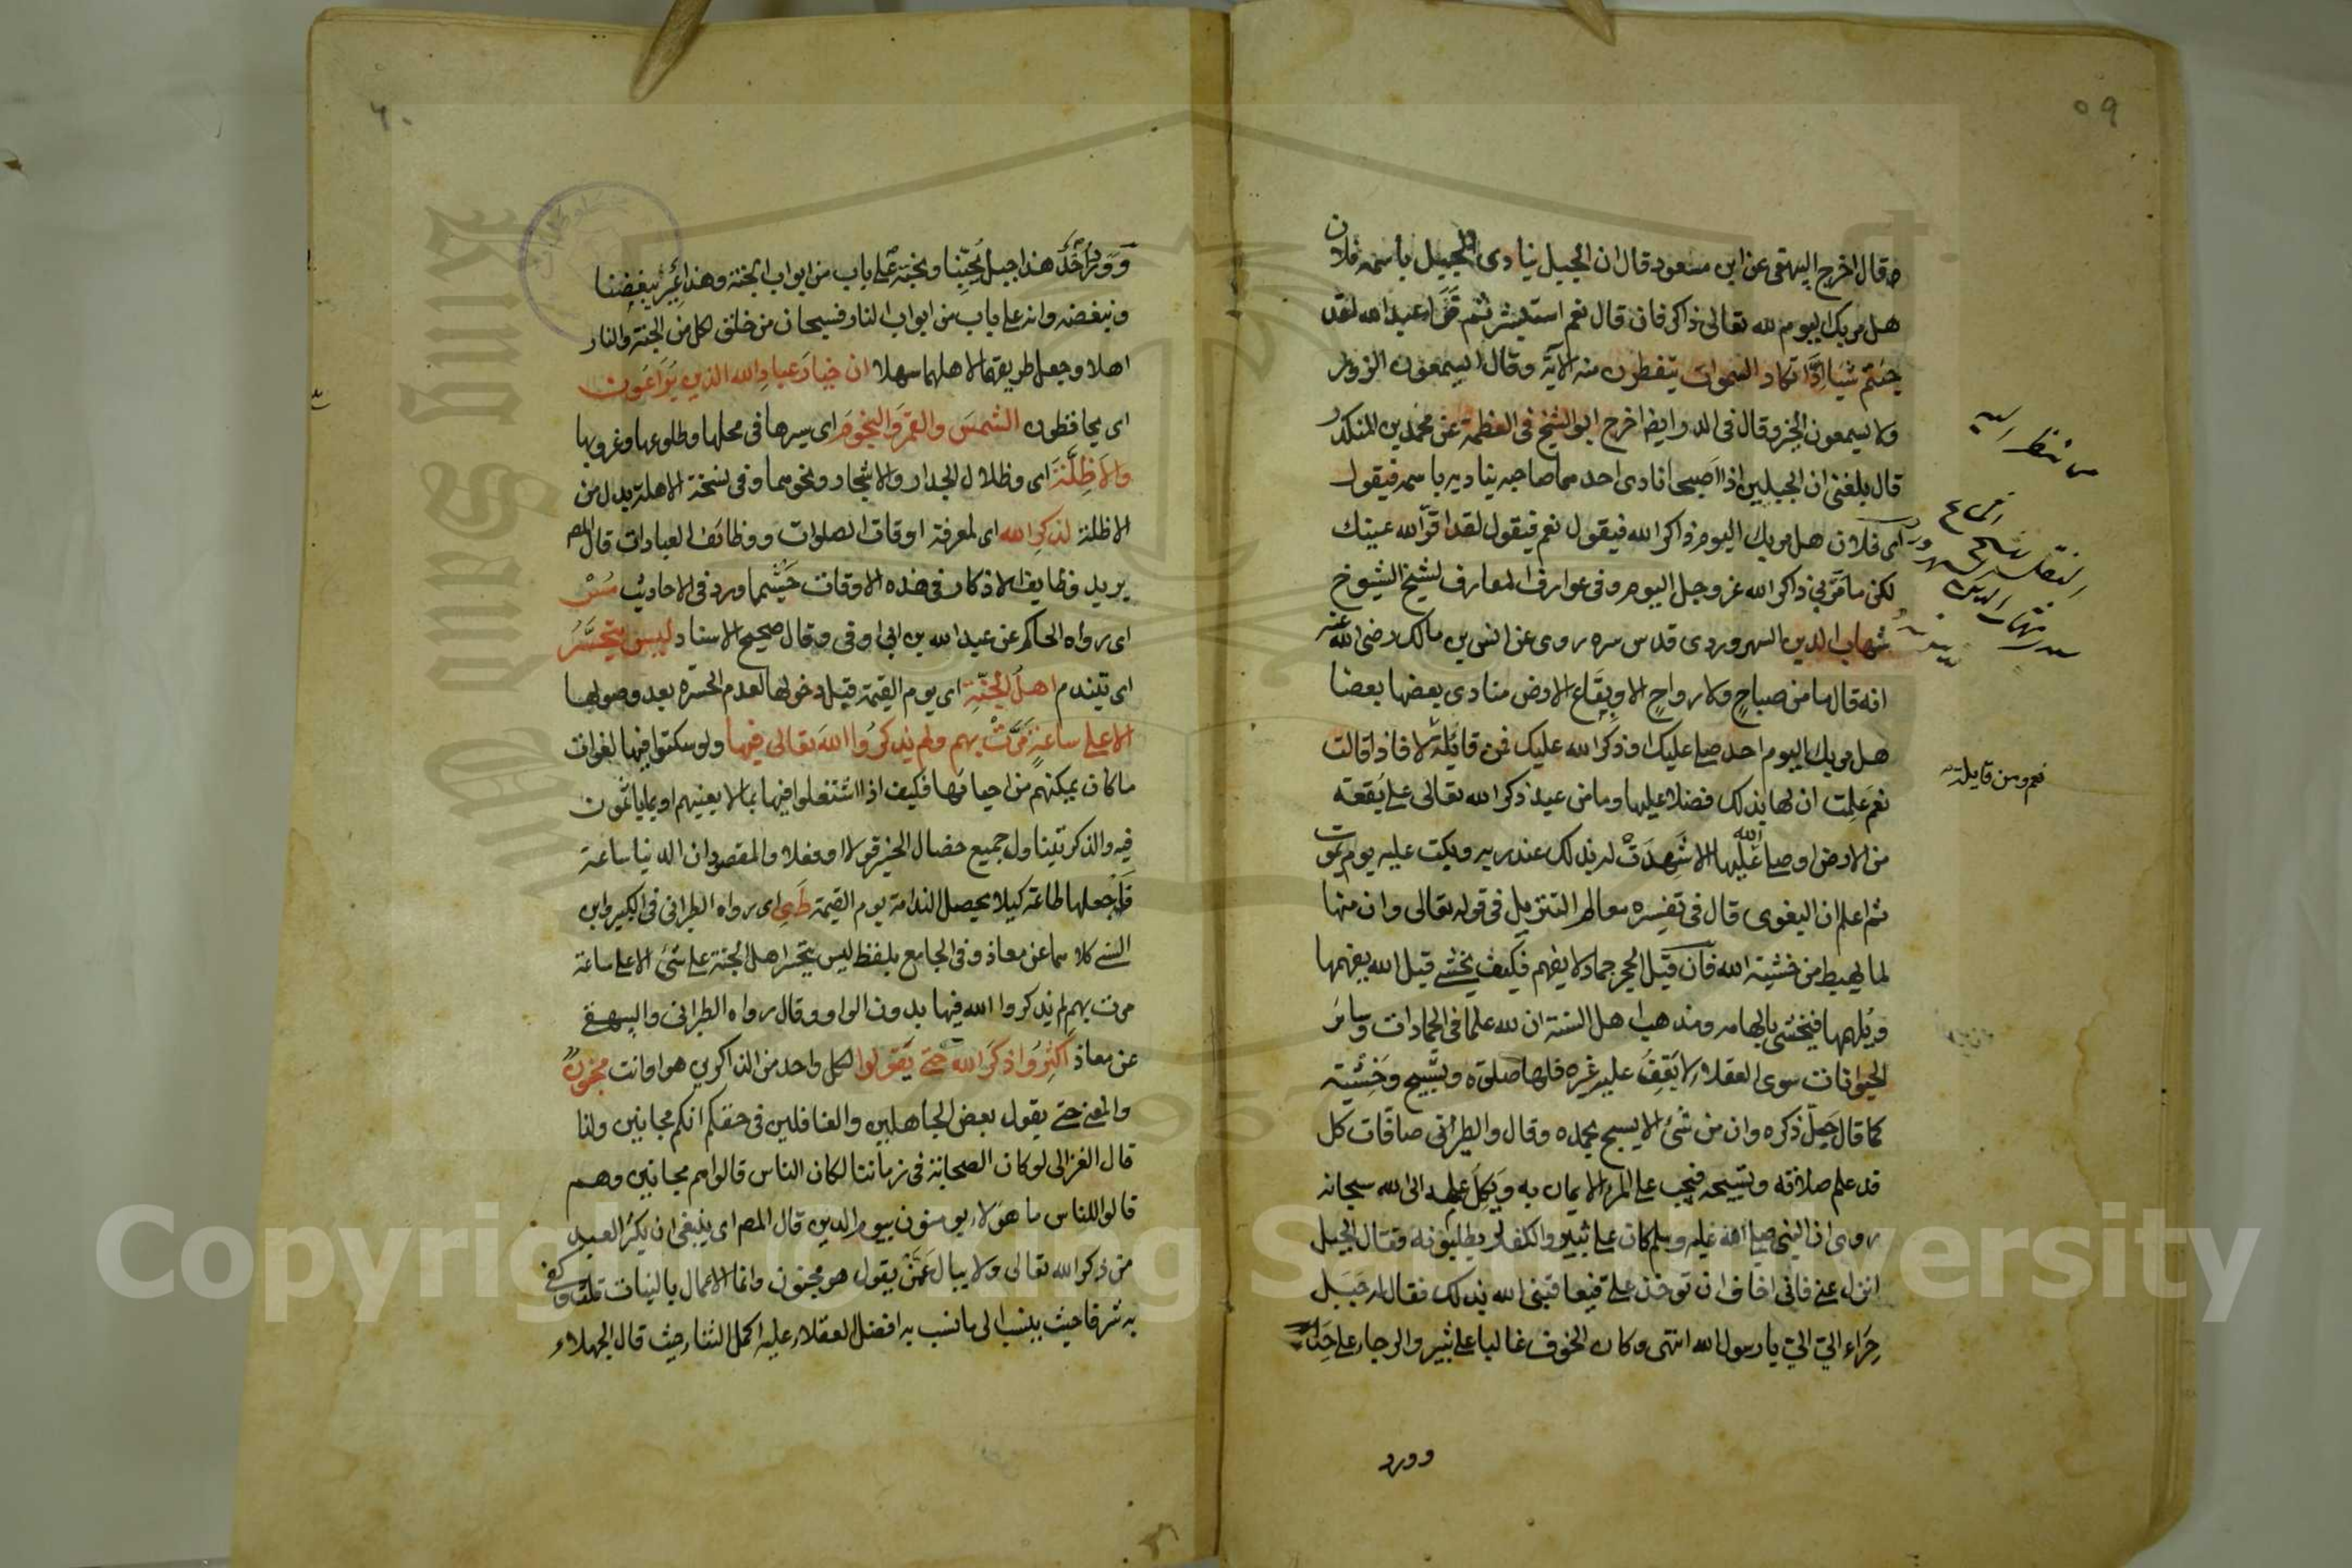 ٥٩
ن
ه قال اخرج البيهقى عن ابن مسعود قال ان الجبل ينادى الجبل باسمه فلان
هل مر بك اليوم لله تعالى ذاكر فان قال نعم استبشر ثم قرا عبد الله لقد
جئتم شيأ إدّا تكاد السموات يتفطرن منه الآية وقال ايسمعون الزور
ولا يسمعون الخير وقال فى الدر ايضا اخرج ابو الشيخ فى العظمة عن محمد بن المنكدر
قال بلغنى ان الجبلين اذا اصبحا نادى احدهما صاحبه يناديه باسمه فيقول
اى فلان هل مر بك اليوم ذاكر الله فيقول نعم فيقول لقد اقرّ الله عينك
لكن ما مَرّ بى ذاكر الله عز وجل اليوم وفى عوارف المعارف لشيخ الشيوخ
شهاب الدين السهروردى قدس سره روى عن انس بن مالك رضى الله عنه
انه قال ما من صباحٍ ولا رواحٍ الا وبِقَاع الارض منادى بعضها بعضا
هل مر بك اليوم احد صلى عليك او ذكر الله عليك فمن قائلة لا فاذا قالت
نعم علمت ان لها بذلك فضلا عليها وما من عبد ذكر الله تعالى على بُقعة
من الارض او صلى الله عليها الا شهدت له بذلك عند ربه وبكت عليه يوم يموت
ثم اعلم ان البغوى قال فى تفسيره معالم التنزيل فى قوله تعالى وان منها
لما يهبط من خشية الله فان قيل الحجر جماد لا يفهم فكيف يخشى قيل الله يفهمها
ويُلهمها فيخشى بالهامه ومذهب اهل السنة ان لله علما فى الجمادات وسائر
الحيوانات سوى العقلاء لا يَقِفُ عليه غيره فلها صلوة وتسبيح وخشية
كما قال جل ذكره وان من شىء الا يسبح بحمده وقال والطير صافات كل
قد علم صلاته وتسبيحه فيجب على المرء الايمان به ويَكِلُ علمه الى الله سبحانه
روى ان النبى صلى الله عليه وسلم كان على ثبير والكفار يطلبونه فقال الجبل
انزل عنى فانى اخاف ان تؤخذ علىّ فيعاقبنى الله بذلك فقال له جبل
حِرَاء الىّ الىّ يا رسول الله انتهى وكان الخوف غالبا على ثبير والرجاء على حراء
وورد
نعم ومن قايلة
٦٠
وورد أحُدٌ هذا جبل يُحبّنا ونحبّه على باب من ابواب الجنة وهذا عَيْر يبغضنا
ونبغضه وانه على باب من ابواب النار فسبحان من خلق لكل من الجنة والنار
اهلا وجعل طريقهما لاهلهما سهلا ان خيارَ عبادِ الله الذين يُرَاعُون
اى يحافظون الشمسَ والقمرَ والنجومَ اى سيرها فى محلها وطلوعها وغروبها
والاَظِلَّةَ اى وظلال الجدار والاشجار ونحوهما وفى نسخة الاهلة بدل من
الاظلة لذكرِ الله اى لمعرفة اوقات الصلوات ووظائف العبادات قال المص
يريد وظايف الاذكار فى هذه الاوقات حَسْبَما ورد فى الاحاديث مُسْ
اى رواه الحاكم عن عبد الله بن ابى اوفى وقال صحيح الاسناد ليس يتحسَّرُ
اى يتندم اهلُ الجنّةِ اى يوم القيمة قبل دخولها لعدم الحسرة بعد وصولها
الا على ساعةٍ مَرَّتْ بهم ولم يذكرُوا اللهَ تعالى فيها ولو سكتوا فيها لفوات
ما كان يمكنهم من احيائها فكيف اذا اشتغلوا فيها بما لا يعنيهم او بما يأثمون
فيه والذكر يتناول جميع خصال الخير قولا وفعلا والمقصود ان الدنيا ساعة
فاجعلها طاعة كيلا يحصل الندامة يوم القيمة طَىِ اى رواه الطبرانى فى الكبير وابن
السنى كلاهما عن معاذ وفى الجامع بلفظ ليس يتحسر اهل الجنة على شىء الا على ساعة
مرت بهم لم يذكروا الله فيها بدون الواو وقال رواه الطبرانى والبيهقى
عن معاذ أكثِرُوا ذكرَ الله حتى يَقولوا لكل واحد من الذاكرين هو او انت مجنونٌ
والمعنى حتى يقول بعض الجاهلين والغافلين فى حقكم انكم مجانين ولذا
قال الغزالى لو كان الصحابة فى زماننا لكان الناس قالوا هم مجانين وهم
قالوا للناس ما هؤلاء يؤمنون بيوم الدين قال المص اى ينبغى ان يكثر العبد
من ذكر الله تعالى ولا يبال عَمَّنْ يقول هو مجنون وانما الاعمال بالنيات قلت وكفى
به شرفا حيث ينسب الى ما نسب به افضل العقلاء عليه اكمل الثناء حيث قال الجهلاء